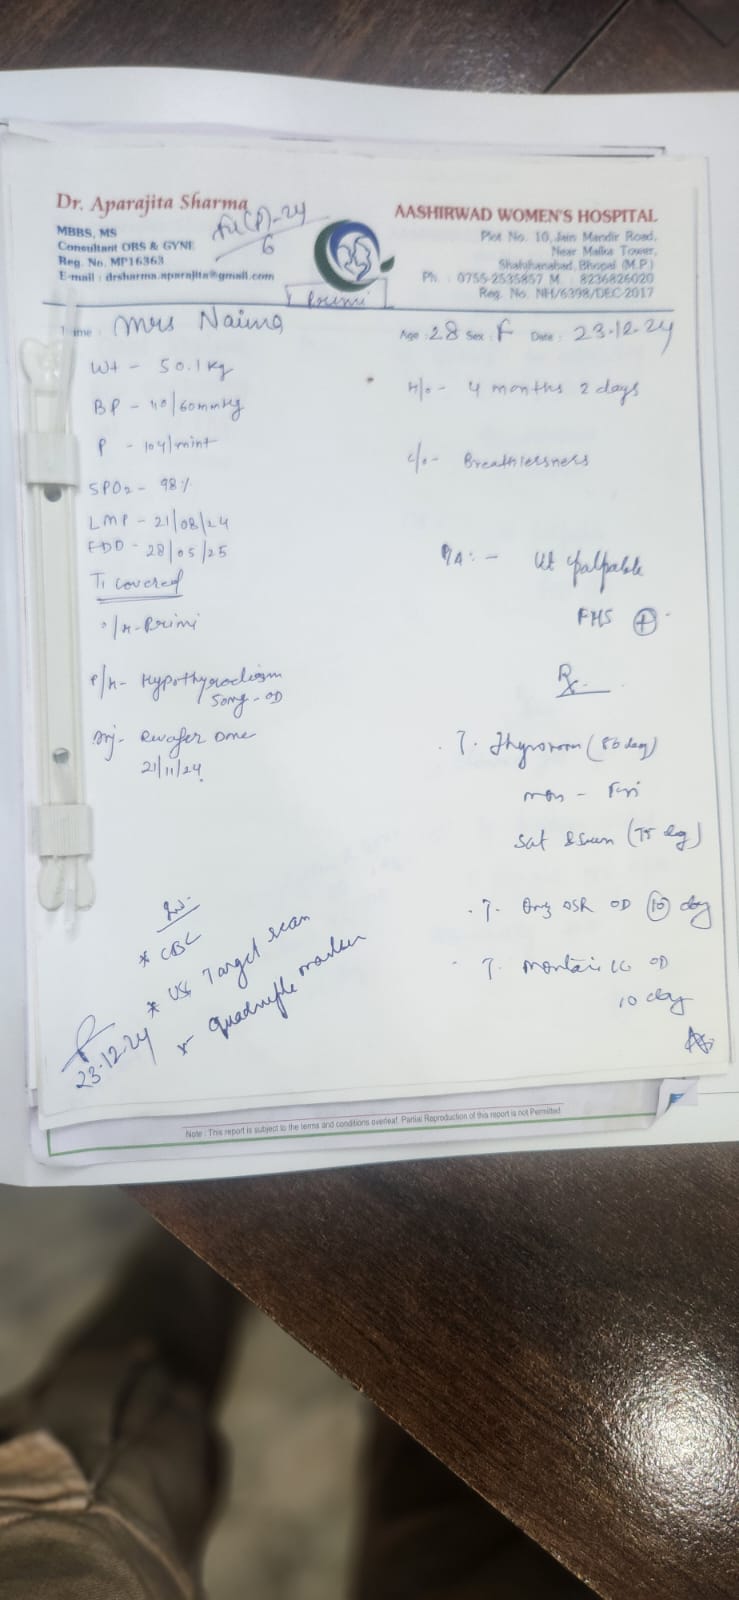 Dr. Aparajita Sharma
MBBS, MS
Consultant OBS & GYNE
Reg. No. MP16363
E-mail : drsharma.aparajita@gmail.com
FU(P)-24
6
AASHIRWAD WOMEN'S HOSPITAL
Plot No. 10, Jain Mandir Road,
Near Malka Tower,
Shahjhanabad, Bhopal (M.P.)
Ph. : 0755-2535857 M. : 8236826020
Reg. No. NH/6398/DEC-2017
Primi
Name : Mrs Naima Age : 28 Sex : F Date : 23.12.24
Wt - 50.1 kg
BP - 110/60mmHg
P - 104/mint
SPO2 - 98%
LMP - 21/08/24
EDD - 28/05/25
T1 covered
O/H - Primi
P/H - Hypothyrodiosm
50mg - OD
Inj -
21/11/24
H/o - 4 months 2 days
c/o - Breathlessness
P/A : - Ut palpable
FHS +
Rx
T. Thyronorm
mon - Fri
Sat & Sun (75
T. DSR OD 10 day
T. montair LC OD
10 day
Inv.
* CBC
* USG Target scan
* Quadruple marker
23.12.24
Note : This report is subject to the terms and conditions overleaf. Partial Reproduction of this report is not Permitted